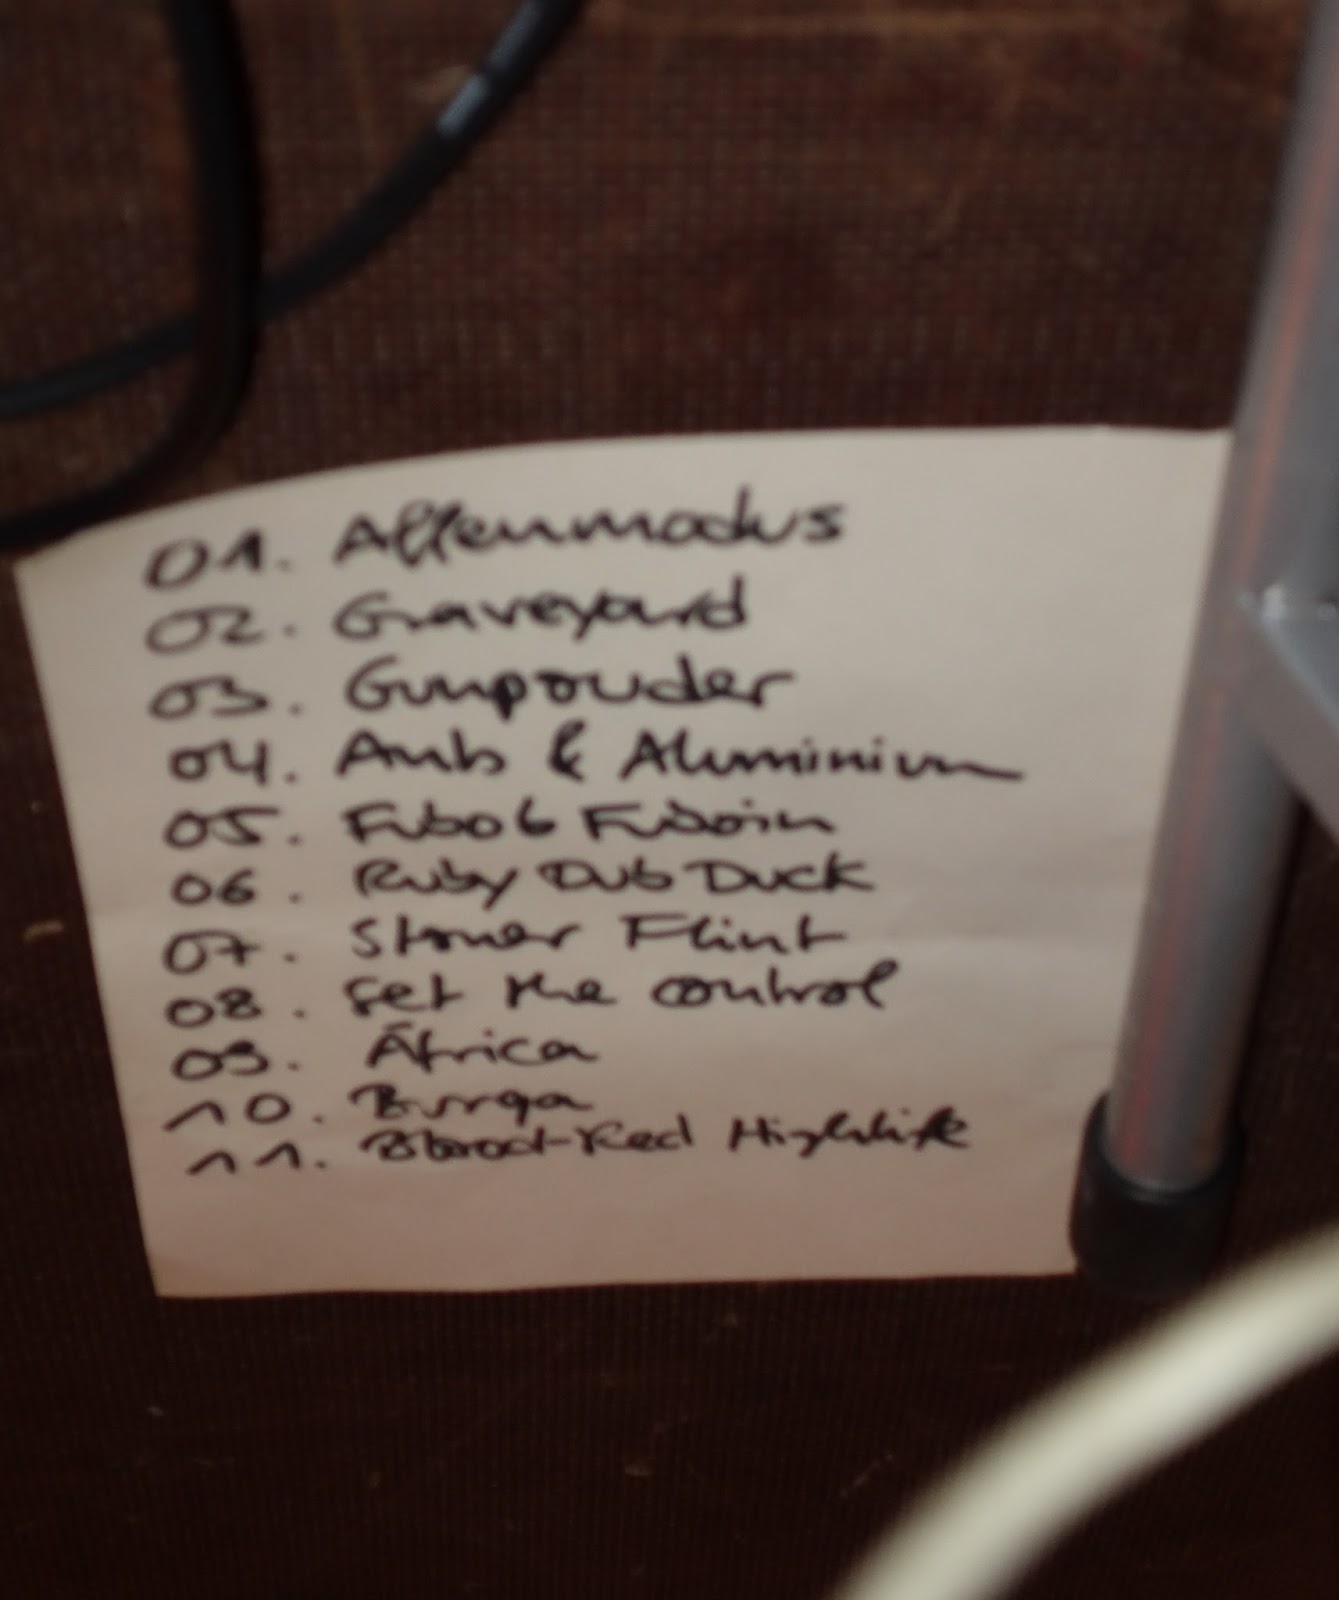 01. Affenmodus
02. Graveyard
03. Gunpouder
04. Amb & Aluminium
05. Fubob Fuboin
06. Ruby Dub Duck
07. Stoner Flint
08. Set the control
09. África
10. Burqa
11. Blood-Red Highlife